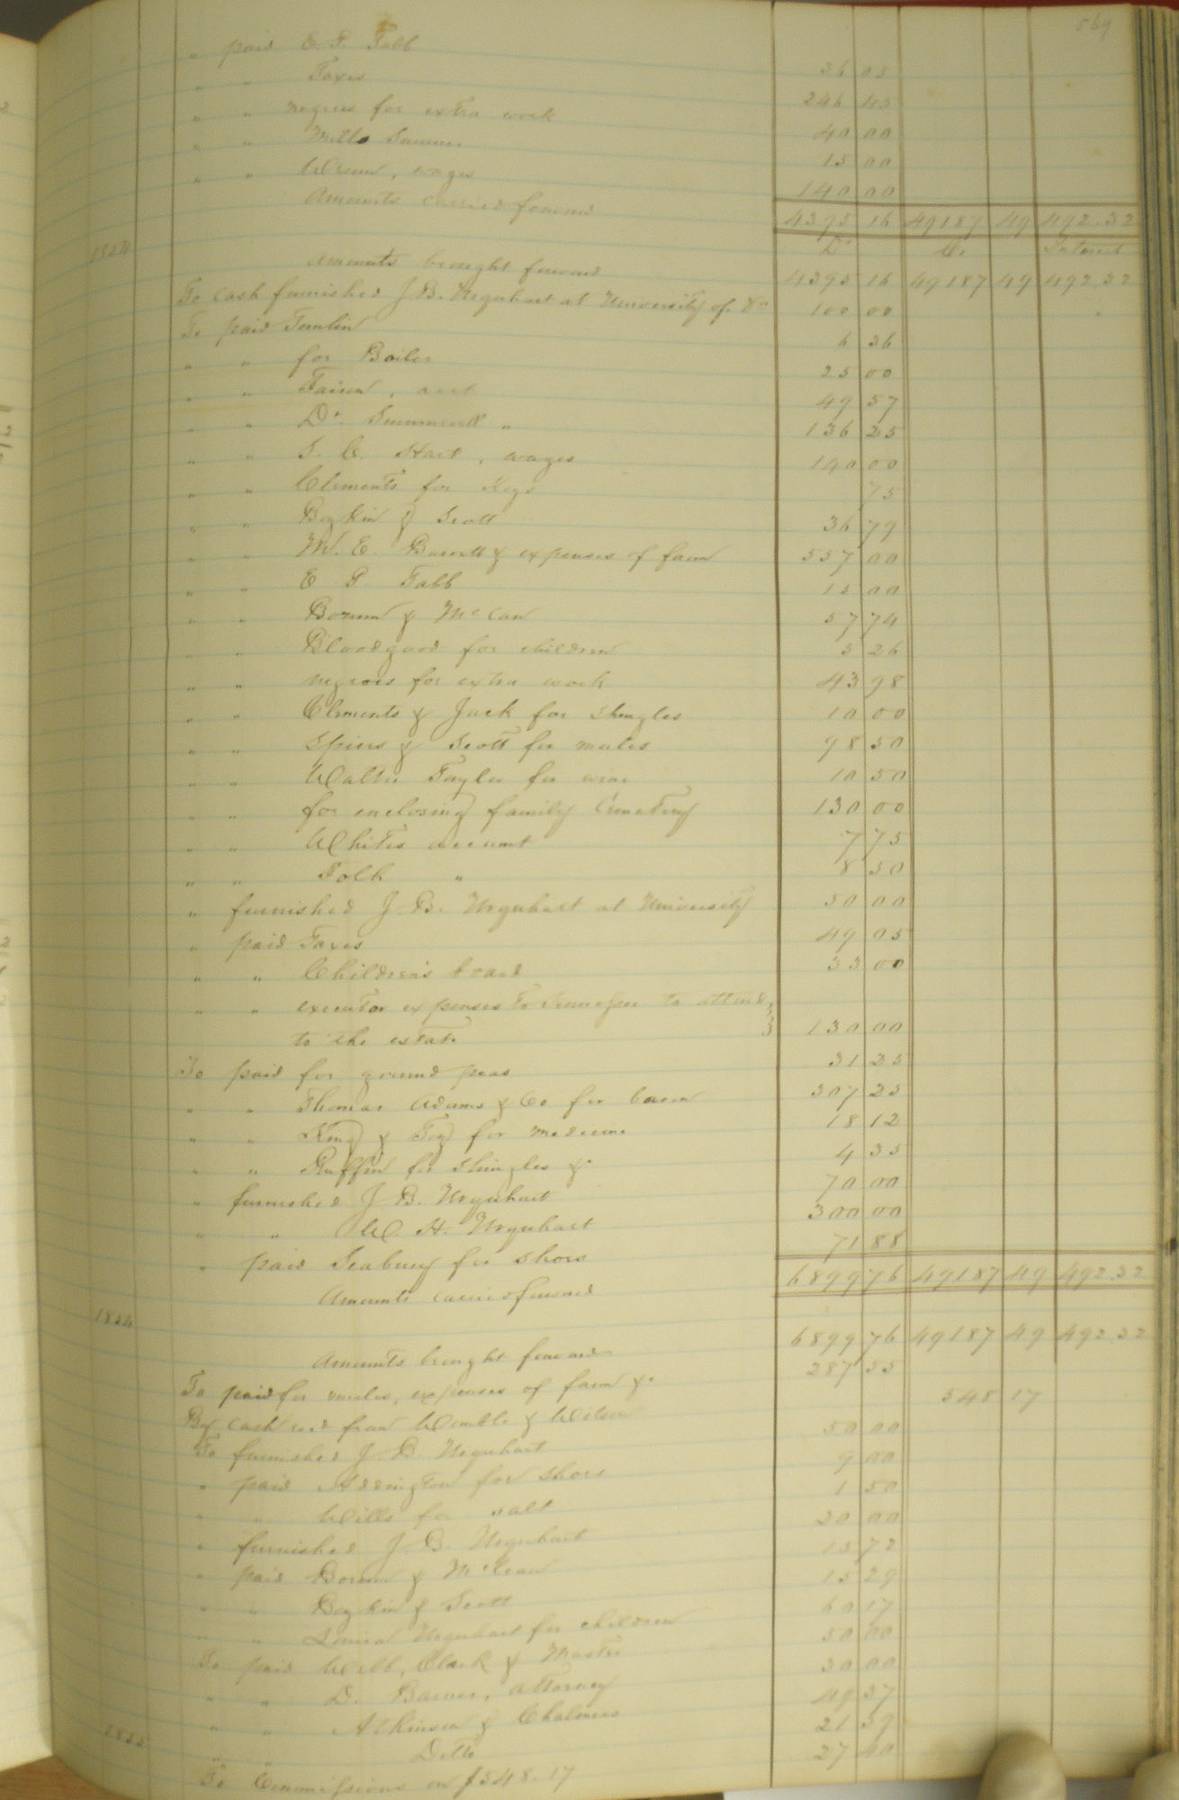 569
" paid E. P. Tabb 36 03
" " Taxes 246 103
" " negroes for extra work 40 00
" " Mills 15 00
" " Wrenn, wages 140 00
Amounts carried forward 4395 16 49187 49 492.32
1854 Dr Cr Interest
Amounts brought forward 4395 16 49187 49 492.32
To cash furnished J. B. Urquhart at University of Va 100 00
To paid Tomlin 6 36
" " for Boiler 25 00
" " Faison, acct 49 57
" " Dr. Summerell " 136 25
" " S. C. Hart, wages 140 00
" " Clements for Keys 75
" " Boykin & Scott 36 79
" " M. E. Barrett & expenses of farm 557 00
" " E P Tabb 15 00
" " Borum & McCan 57 74
" " Bloodgood for children 3 26
" " negroes for extra work 43 98
" " Clements & Jack for shingles 10 00
" " Spiers & Scott for mules 98 50
" " Walter Taylor for wine 10 50
" " for enclosing family Cemetery 130 00
" " White's account 7 75
" " Folk " 8 50
" furnished J. B. Urquhart at University 50 00
" paid Taxes 49 05
" " Children's board 33 00
" " executor expenses to Tennessee to attend
to the estate 130 00
To paid for ground peas 31 25
" " Thomas Adams & Co for bacon 307 23
" " King & Toy for medicine 18 12
" " Ruffin for shingles &c 4 35
" furnished J. B. Urquhart 70 00
" " W. H. Urquhart 300 00
" paid Seabury for shoes 71 88
Amounts carried forward 6899 76 49187 49 492.32
1854
Amounts brought forward 6899 76 49187 49 492.32
To paid for mules, expenses of farm &c 287 55
By cash recd from Womble & Wilson 548 17
To furnished J. B. Urquhart 50 00
" paid Addington for shoes 9 00
" " Wills for salt 1 50
" furnished J. B. Urquhart 20 00
" paid Borum & McLean 13 72
" " Boykin & Scott 15 29
" " Louisa Urquhart for children 60 17
To paid Webb, Clark & 50 00
" " D. Barnes, attorney 30 00
" " Atkinson & Chalmers 49 37
" " Ditto 21 39
To Commissions on $548.17 27 40